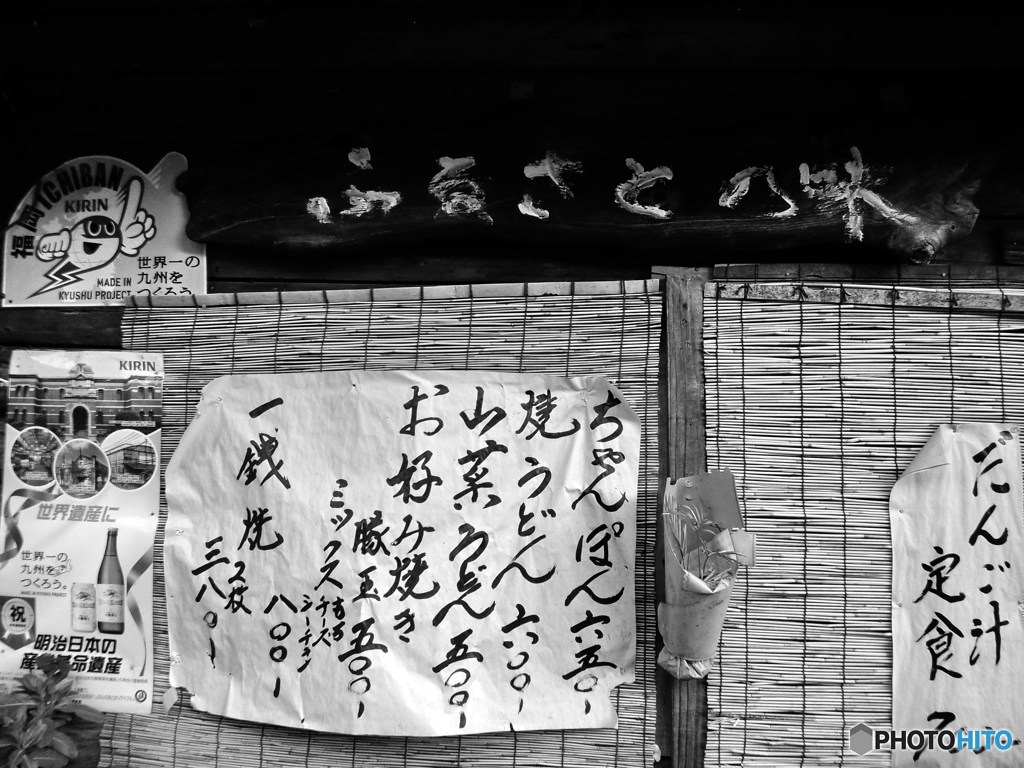 ふるさとの味
福岡 ICHIBAN
KIRIN
MADE IN
KYUSHU PROJECT
世界一の
九州を
つくろう
KIRIN
世界遺産に
世界一の、
九州を
つくろう。
祝
明治日本の
ちゃんぽん 六五〇-
焼うどん 六〇〇-
山菜うどん 五〇〇-
お好み焼き
豚玉 五〇〇-
ミックス
チーズ
八〇〇-
一銭焼
2枚
三八〇-
だんご汁
定食
PHOTOHITO